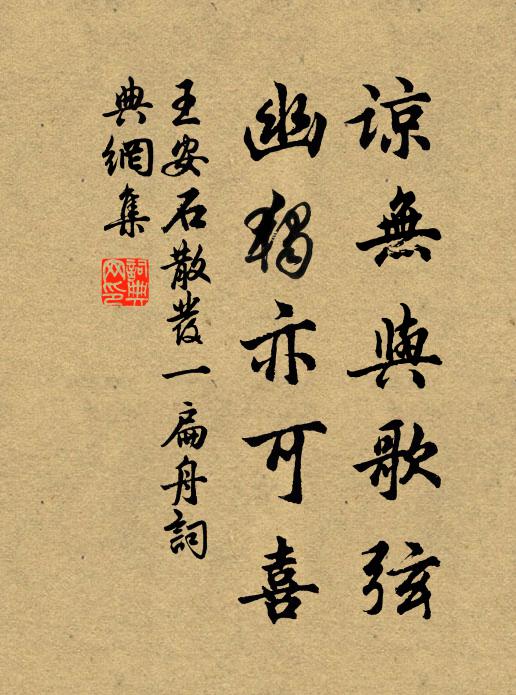 諒無與歌弦
幽獨亦可喜
王安石散發一扁舟詞
典網集
詞典
网印